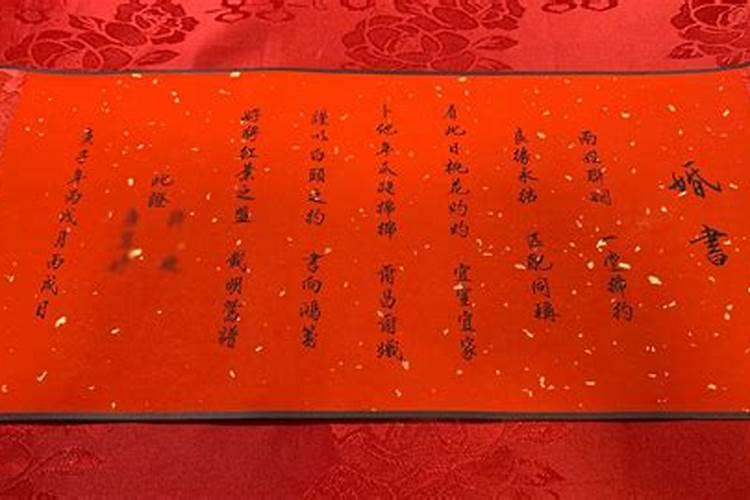 婚書
兩姓聯姻 一堂締約
良緣永結 匹配同稱
看此日桃花灼灼 宜室宜家
卜他年瓜瓞綿綿 爾昌爾熾
謹以白頭之約 書向鴻箋
好將紅葉之盟 載明鴛譜
此證
庚子年丙戌月丙戌日